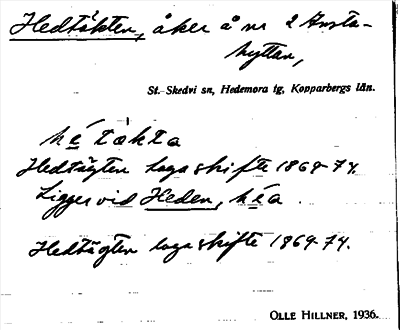 Hedtäkten, åker å nr 2 Ansta-
hyttan,
St. Skedvi sn, Hedemora tg, Kopparbergs län.
hétàkta
Hedtägten laga skifte 1869-74.
Ligger vid Heden, héa.
Hedtägten laga skifte 1869-74.
OLLE HILLNER, 1936.